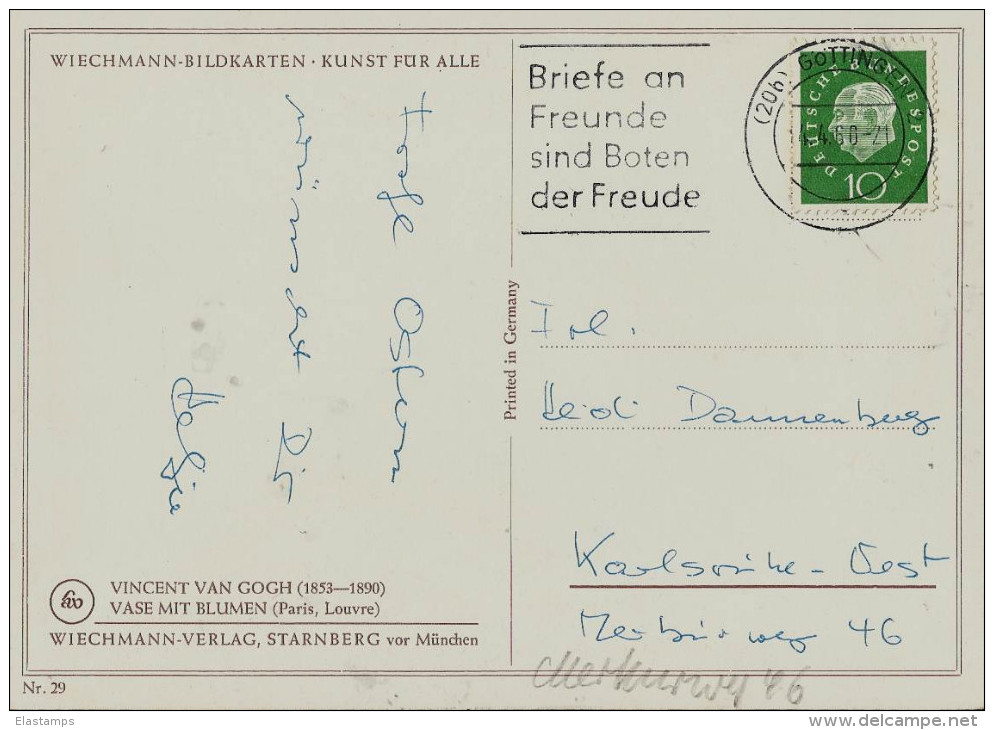 WIECHMANN-BILDKARTEN · KUNST FÜR ALLE
Frohe Ostern
wünscht Dir
Helga
VINCENT VAN GOGH (1853—1890)
VASE MIT BLUMEN (Paris, Louvre)
WIECHMANN-VERLAG, STARNBERG vor München
Nr. 29
Printed in Germany
Briefe an
Freunde
sind Boten
der Freude
(20b) GÖTTINGEN 2
4.60-21
DEUTSCHE BUNDESPOST
10
Frl.
Heidi Dannenberg
Karlsruhe - West
Merkurweg 46
Merkurweg 46
Elastamps
www.delcampe.net